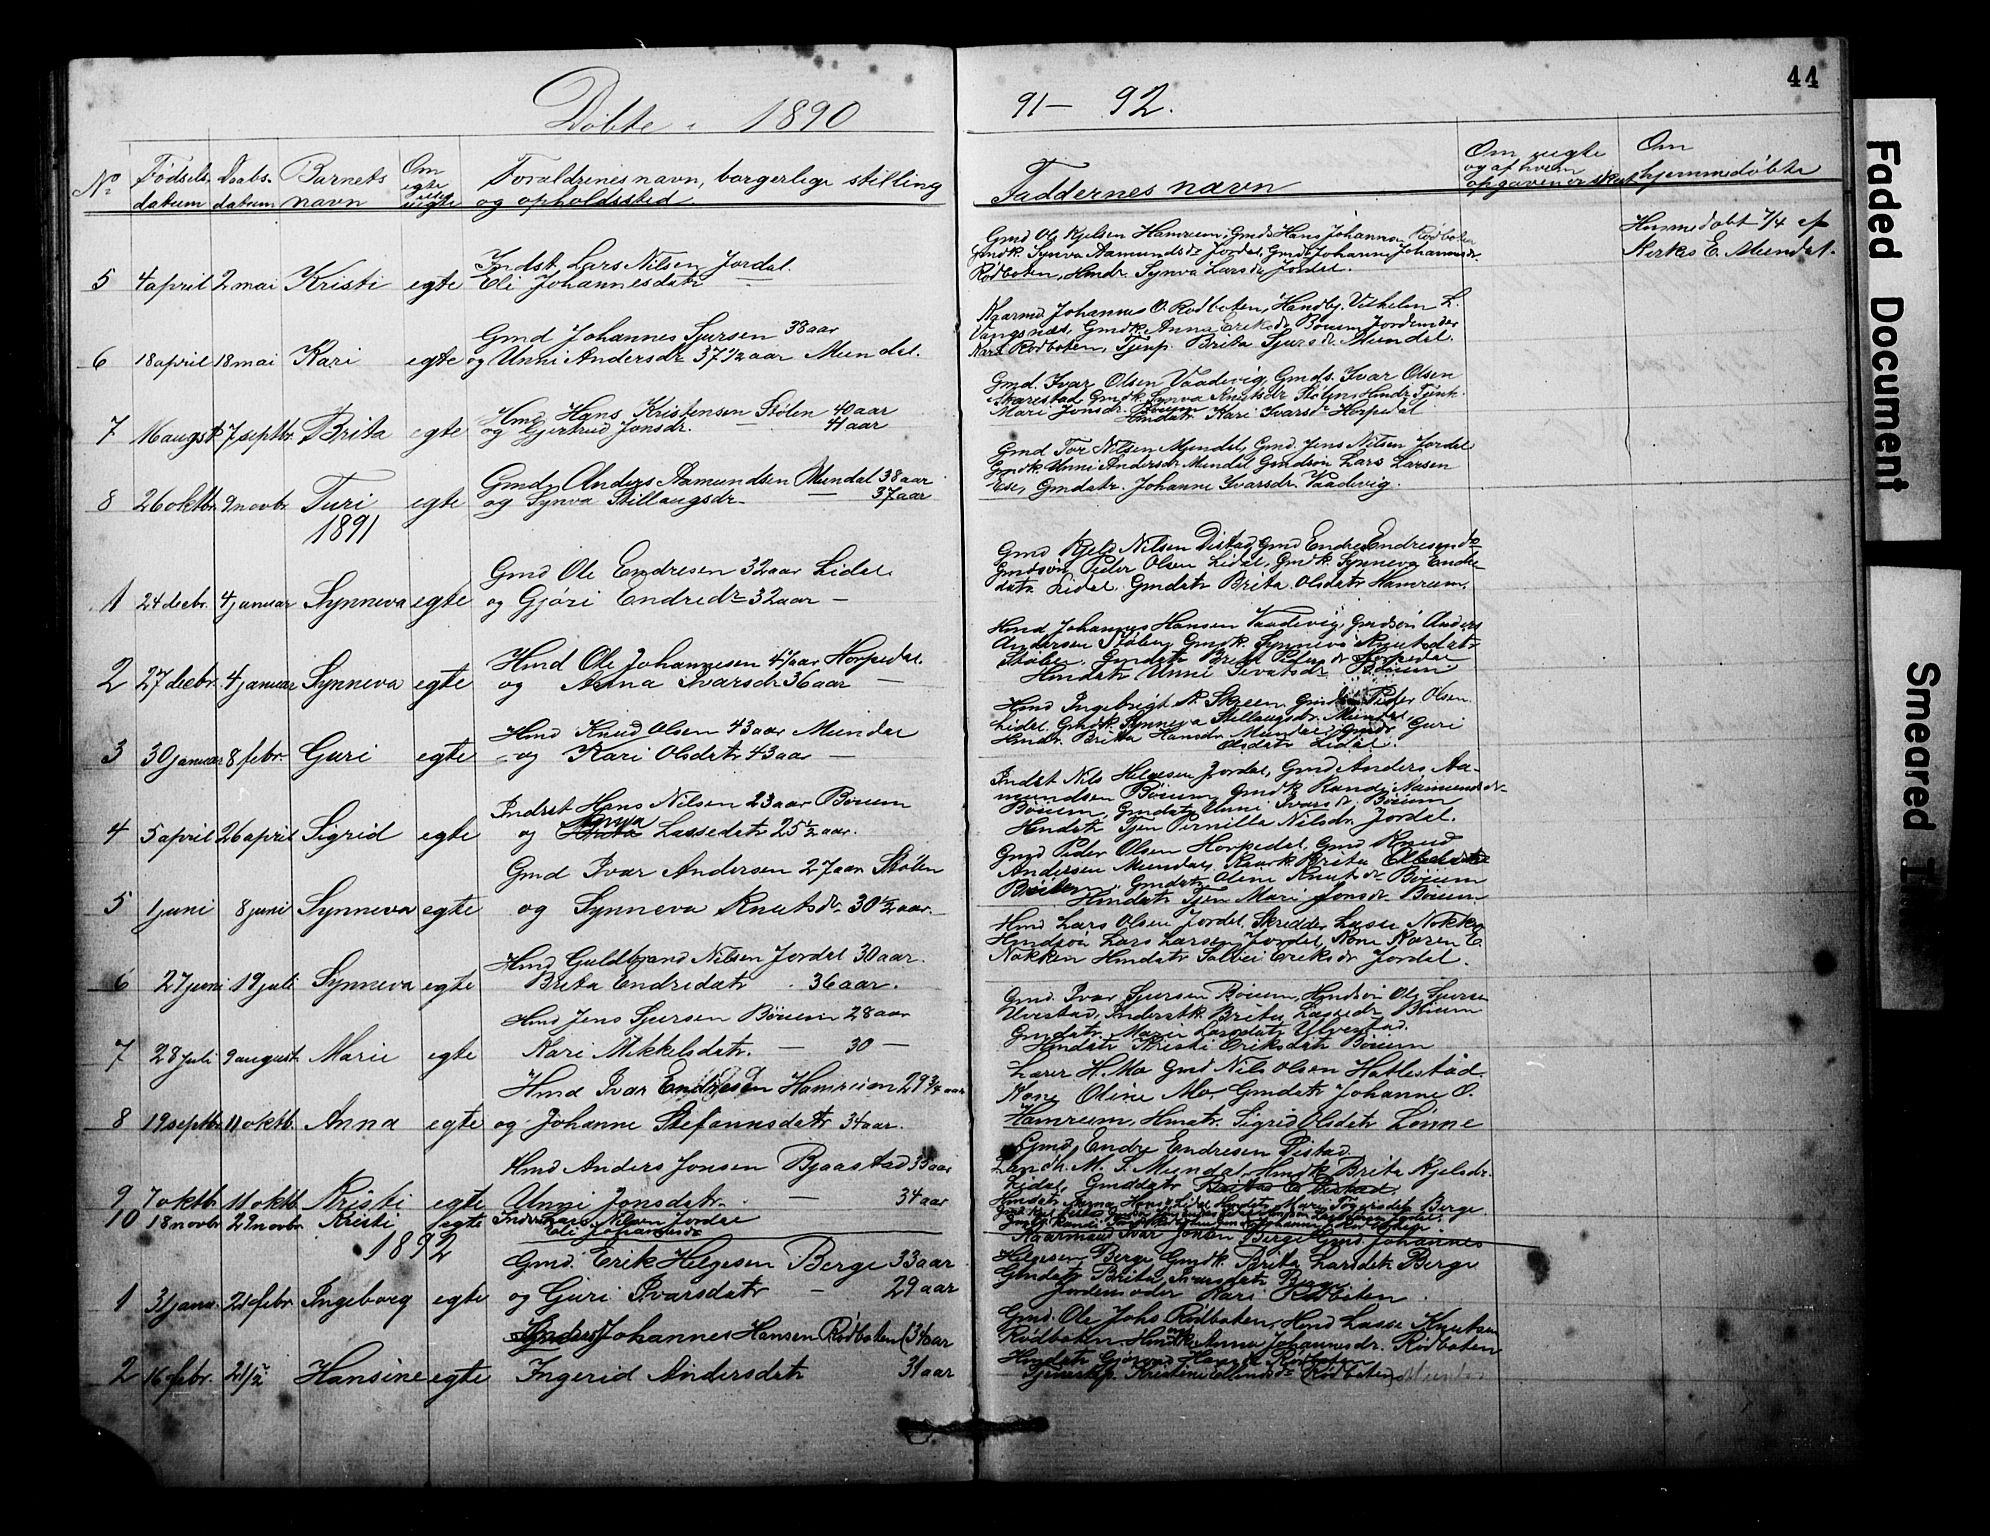 44
Døbte 1890
91 – 92.
No
Fødsels-
datum
Daabs-
datum
Barnets
navn
Om
egte
eller
uegte
Forældrenes navn, borgerlige stilling
og opholdssted
Faddernes navn
Om uegte
og af hvem
opgaven er sket
Om
hjemmedøbte
5 4 april 2 mai Kristi egte
Indst Lars Nilsen Jordal.
Eli Johannesdatr —
Rødboten, Hmdr. Synva Larsdr Jordal.
Hjemmedøbt 7/4 af
Kirkes E. Mundal.
6 18 april 18 mai Kari egte
Gmd Johannes Sjursen 38 aar
og Unni Andersdr 37 1/2 aar Mundal.
Kaarmd Johannes O. Rødboten, Handbj. Vilhelm L.
Vangsnes, Gmdk. Anna Eriksdr Bøium Jordemoder
Kari Rødboten, Tjenp. Brita Sjursdr Mundal.
7 16 augst 7 septbr. Brita egte
Hmd Hans Kristensen Stølen 40 aar
og Gjertrud Jonsdr. — 41 aar
Gmd. Ivar Olsen Vaadevig, Gmds. Ivar Olsen
Skarestad, Gmdk. Synva Knutsdr Stølen, Hmdr Tjenh.
Mari Jonsdr. Bøium
Hmdatr Kari Ivarsdr Horpedal
8 26 oktbr. 9 novbr. Turi egte
Gmd. Anders Aamundsen Mundal 38 aar
og Synva Stillaugsdr — 37 aar
Gmd Tor Nilsen Mundal, Gmd. Jens Nilsen Jordal
Gmdk. Unni Andersdr Mundal Gmdsøn Lars Larsen
Ese, Gmdatr. Johanne Ivarsdr. Vaadevig.
1891
1 24 decbr. 4 januar Synneva egte
Gmd Ole Endresen 32 aar Lidal
og Gjøri Endredr 32 aar —
Gmd Kjeld Nilsen Distad, Gmd Endre Endresen do
Gmdsøn Peder Olsen Lidal, Gmdk. Synneva Endre-
datr Lidal. Gmdatr Brita Olsdatr Hamrum.
2 27 decbr. 4 januar Synneva egte
Hmd Ole Johannesen 41 aar Horpedal.
og Anna Ivarsdr 36 aar —
Hmd Johannes Hansen Vaadevig, Gmdsøn Anders
Andersen Stølen, Gmdk. Synneva Knutsdatr
Stølen, Gmdatr Brita Pedersdr Horpedal
Hmdatr Unni Sivatsdr Bøium
3 30 januar 8 febr. Guri egte
Hmd Knud Olsen 43 aar Mundal
og Kari Olsdatr 43 aar —
Hmd Ingebrigt A. Skreen Peder Olsen
Lidal Gmdk. Synneva Stillaugsdr. Mundal,
Hmdr. Britta Hansdr Mundal, Gmdr Guri
Olsdatr Lidal.
4 5 april 26 april Sigrid egte
Inderst Hans Nilsen 23 aar Bøium
Synva
og Lassedatr 25 1/2 aar.
Indst Nils Helgesen Jordal, Gmd Anders Aa-
mundsen Bøium Gmdk Randi Aamundsdr
Bøium, Gmdatr Unni Ivarsdr Bøium
Hmdatr Tjen Pernilla Nilsdr. Jordal.
5 1 juni 8 juni Synneva egte
Gmd Ivar Andersen 27 aar Stølen
og Synneva Knutsdr 30 1/2 aar.
Gmd Peder Olsen Horpedal, Gmd Knud
Andersen Mundal, Kaark Brita
Gmdatr Oline Knutsdr Bøium
Hmdatr Tjen Mari Jonsdr Bøium
6 27 juni 19 juli Synneva egte
Hmd Guldbrand Nilsen Jordal 30 aar.
Brita Endredatr. 36 aar.
Hmd Lars Olsen Jordal, Skredder Lasse Nokken
Hmdsøn Lars Larsen Jordal, Kone Karen E.
Nokken Hmdatr Solvei Eriksdr Jordal.
7 28 juli 9 august Marie egte
Hmd Jens Sjursen Bøium 28 aar
Kari Mikkelsdatr. — 30 —
Gmd. Ivar Sjursen Bøium, Hmdsøn Ole Sjursen
Ulvestad, Inderstk. Brita Lassedr Bøium
Gmdatr. Marie Larsdatr Ulvestad.
Hmdatr Kristi Eriksdatr Bøium
8 19 septbr. 11 oktb. Anna egte
Hmd Ivar Endresen Hamreum 29 3/4 aar
og Johanne Stefannsdatr 34 aar.
Lærer H. Mo Gmd Nils Olson Hatlestad.
Kone Oline Mo. Gmdatr Johanne O.
Hamreum, Hmatr. Sigrid Olsdatr Lønne
9 7 oktb. 11 oktb. Kristi egte
Hmd Anders Jonsen Bjaastad 35 aar
Unni Jonsdatr — 34 aar
Gmd, Endre Endresen Distad.
Landh. M. S. Mundal, Hmdk Brita Kjelsdr.
Lidal, Gmddatr
10 18 novbr 29 novbr. Kristi egte
Inderst Lars Nilsen Jordal
Eli Johannesdr
1892
1 31 janu. 21 febr. Ingeborg egte
Gmd. Erik Helgesen Berge 33 aar
og Guri Ivarsdatr — 29 aar
Kaarmand Ivar Jonsen Berge Gmd. Johannes
Helgesen Berge Gmdk. Brita Larsdatr Berge
Gmdatr Brita Ivarsdatr Berge
Jordemoder Kari Rødboten
2 16 febr. 21/2 Hansine egte
Johannes Hansen Rødboten (34 aar
Ingerid Andersdatr 31 aar
Gmd. Ole Johs Rødboten, Hmd Lasse Knutsen
Rødboten, Anna Johannesdr. Rødboten
Kristine Ellendsdr (Rødboten) Mundal
Faded Document
Smeared